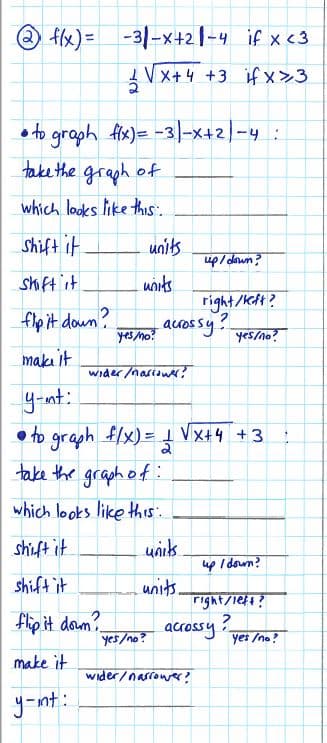 ② f(x) = -3|-x+2|-4 if x<3
1/2 √x+4 +3 if x≥3
• to graph f(x)= -3|-x+2|-4 :
take the graph of ____
which looks like this:
shift it ____ units ____
up/down?
shift it ____ units ____
right/left?
flip it down? ____ across y? ____
yes/no? yes/no?
make it ____
wider/narrower?
y-int: ____
• to graph f(x) = 1/2 √x+4 +3 :
take the graph of : ____
which looks like this:
shift it ____ units ____
up/down?
shift it ____ units ____
right/left?
flip it down? ____ across y? ____
yes/no? yes/no?
make it ____
wider/narrower?
y-int: ____